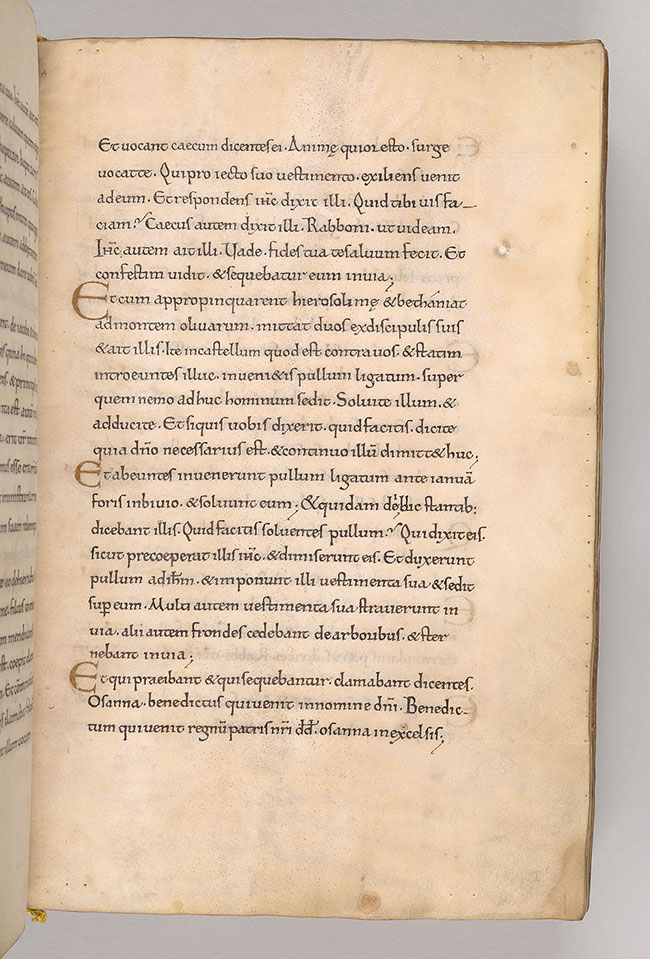 Et vocant caecum dicentes ei. Animę quior esto. surge
vocat te. Qui proiecto suo vestimento. exiliens venit
ad eum. Et respondens ihc̄ dixit illi. Quid tibi vis fa-
ciam? Caecus autem dixit illi. Rabboni. ut videam.
Ihc̄ autem ait illi. Vade. fides tua te salvum fecit. Et
confestim vidit. & sequebatur eum in via;
Et cum appropinquarent hierosolimę & bethaniae
ad montem olivarum. mittat duos ex discipulis suis
& ait illis. Ite in castellum quod est contra vos. & statim
introeuntes illuc. inveni&is pullum ligatum. super
quem nemo adhuc hominum sedit. Solvite illum. &
adducite. Et si quis vobis dixerit. quid facitis. dicite
quia dn̄o necessarius est. & continuo illū dimitt& huc;
Et abeuntes invenerunt pullum ligatum ante ianuā
foris in bivio. & solvunt eum; & quidam de illic stantib;
dicebant illis. Quid facitis solventes pullum? Qui dix eis.
sicut precoeperat illis ihc̄. & dimiserunt eis. Et duxerunt
pullum ad ihm̄. & imponunt illi vestimenta sua & sedit
sup̄ eum. Multi autem vestimenta sua straverunt in
via. alii autem frondes cedebant de arboribus. & ster
nebant in via;
Et qui praeibant & qui sequebantur. clamabant dicentes.
Osanna. benedictus qui venit in nomine dn̄i. Benedic-
tum qui venit regnū patris nr̄i dd̄. osanna in excelsis;